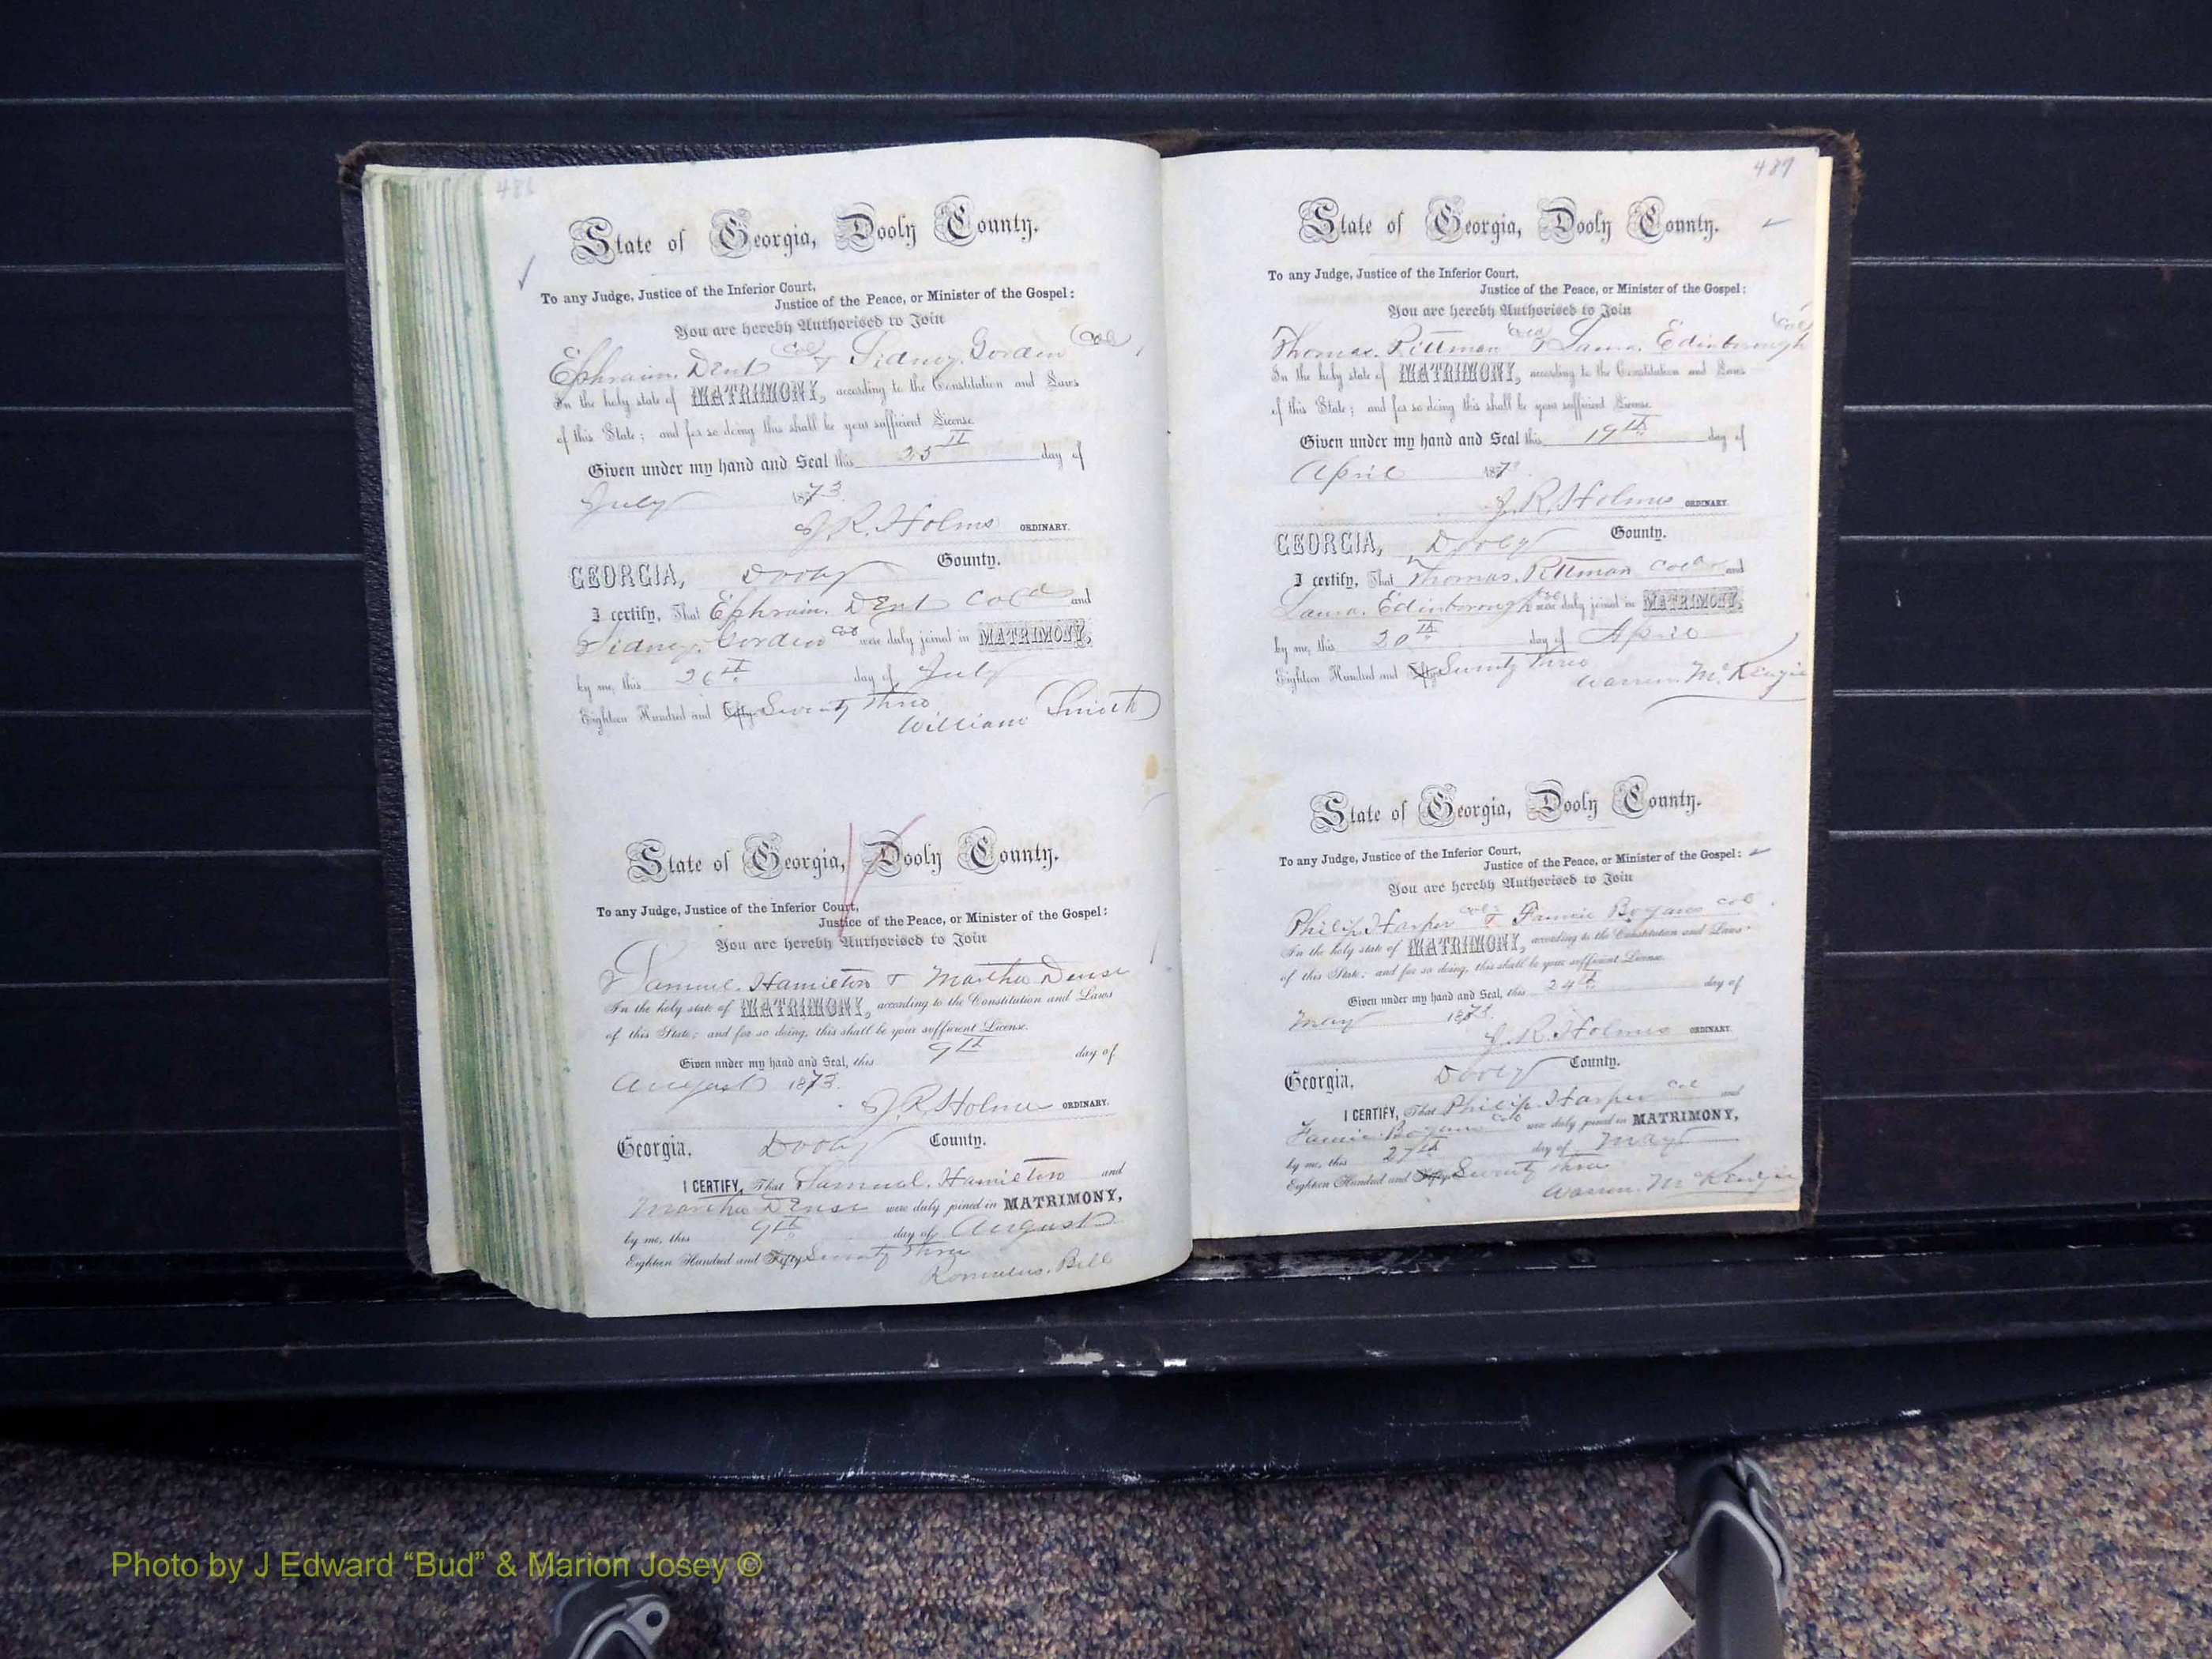 486
State of Georgia, Dooly County.
To any Judge, Justice of the Inferior Court,
Justice of the Peace, or Minister of the Gospel:
You are hereby Authorised to Join
Ephraim. Dent Col & Sidney. Gorden Col
In the holy state of MATRIMONY, according to the Constitution and Laws
of this State; and for so doing this shall be your sufficient License.
Given under my hand and Seal this 25th day of
July 1873
J. R. Holmes ORDINARY.
GEORGIA, Dooly County.
I certify, That Ephraim. Dent Cold and
Sidney. Gorden Col were duly joined in MATRIMONY,
by me, this 26th day of July
Eighteen Hundred and Fifty Seventy Three
William Smith
State of Georgia, Dooly County.
To any Judge, Justice of the Inferior Court,
Justice of the Peace, or Minister of the Gospel:
You are hereby Authorised to Join
Samuel. Hamilton & Martha Dense
In the holy state of MATRIMONY, according to the Constitution and Laws
of this State; and for so doing, this shall be your sufficient License.
Given under my hand and Seal, this 9th day of
August 1873.
J. R. Holmes ORDINARY.
Georgia, Dooly County.
I CERTIFY, That Samuel. Hamilton and
Martha Dense were duly joined in MATRIMONY,
by me, this 9th day of August
Eighteen Hundred and Fifty Seventy Three
Romulus. Bell
487
State of Georgia, Dooly County.
To any Judge, Justice of the Inferior Court,
Justice of the Peace, or Minister of the Gospel:
You are hereby Authorised to Join
Thomas. Pittman Cold & Laura. Edinborough Col
In the holy state of MATRIMONY, according to the Constitution and Laws
of this State; and for so doing this shall be your sufficient License.
Given under my hand and Seal this 19th day of
April 1873
J. R. Holmes ORDINARY.
GEORGIA, Dooly County.
I certify, That Thomas. Pittman Cold and
Laura. Edinborough Col were duly joined in MATRIMONY,
by me, this 20th day of April
Eighteen Hundred and Fifty Seventy Three
Warren. McKenzie
State of Georgia, Dooly County.
To any Judge, Justice of the Inferior Court,
Justice of the Peace, or Minister of the Gospel:
You are hereby Authorised to Join
Philip. Harper Col & Fannie Bogans Col
In the holy state of MATRIMONY, according to the Constitution and Laws
of this State; and for so doing, this shall be your sufficient License.
Given under my hand and Seal, this 24th day of
May 1873.
J. R. Holmes ORDINARY.
Georgia, Dooly County.
I CERTIFY, That Philip. Harper Col and
Fannie. Bogans Col were duly joined in MATRIMONY,
by me, this 27th day of May
Eighteen Hundred and Fifty Seventy Three
Warren. McKenzie
Photo by J Edward “Bud” & Marion Josey ©